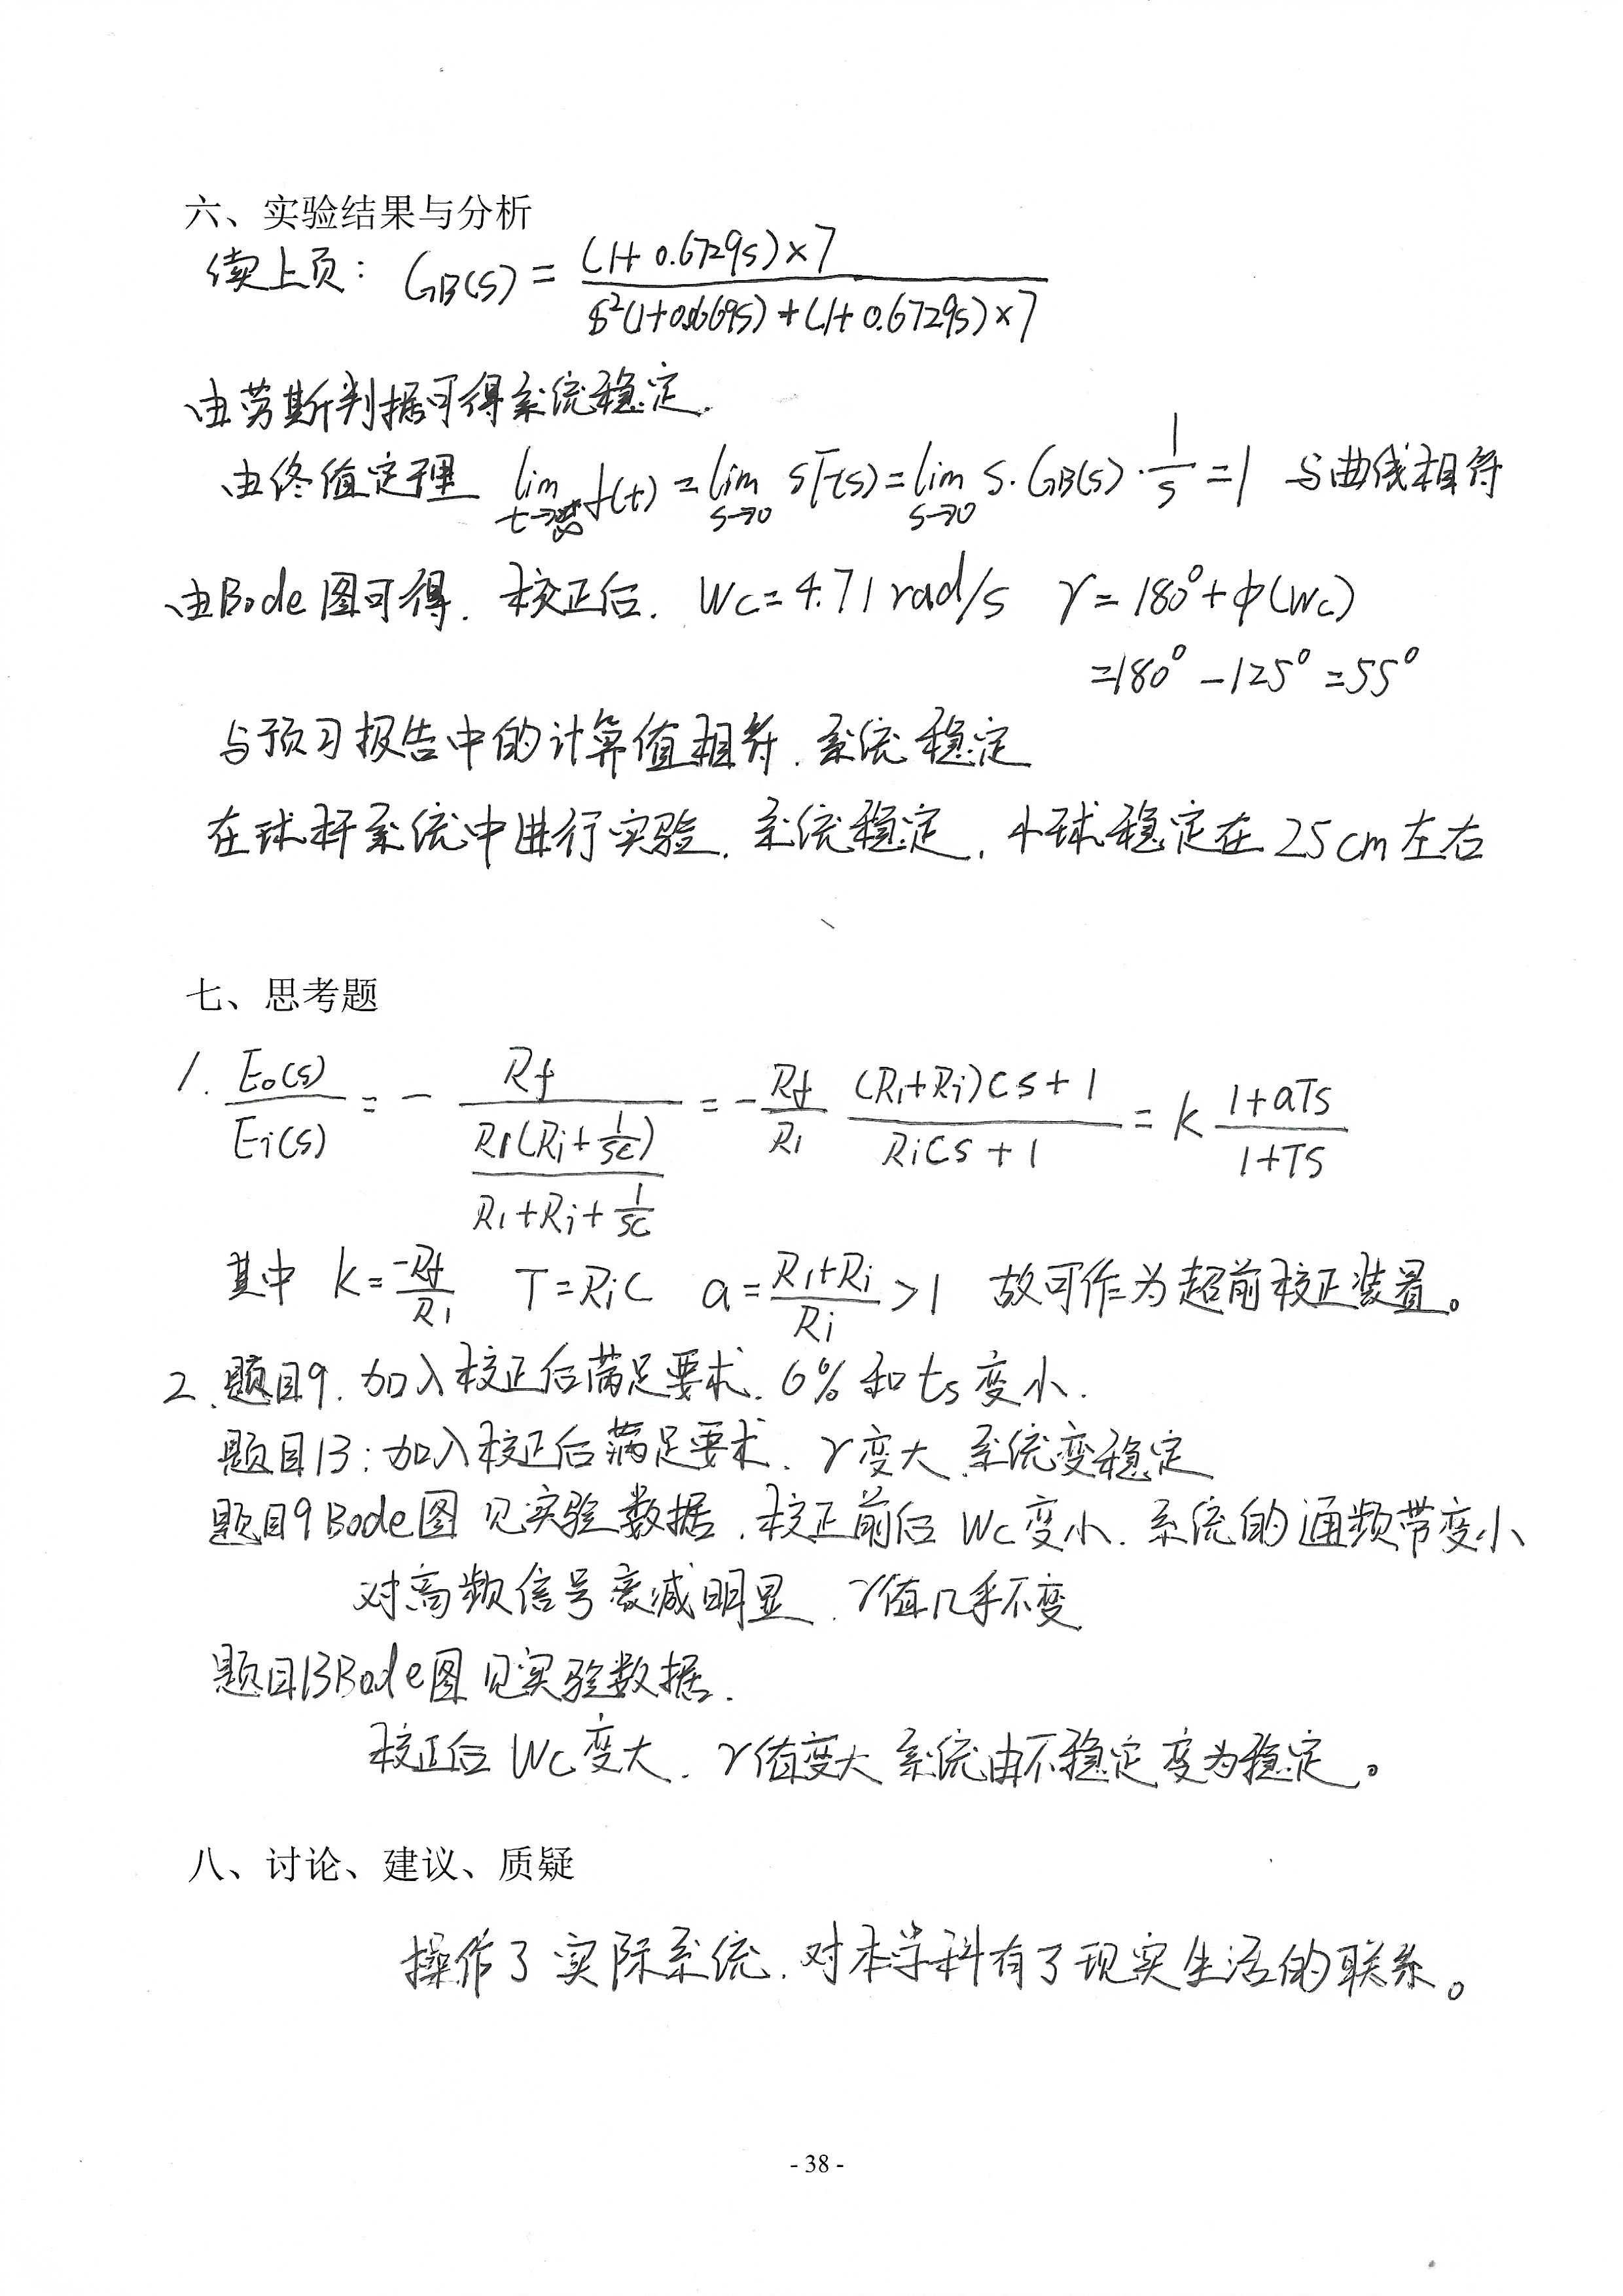 六、实验结果与分析
续上页: GB(s) = \frac{(1+0.6729s)×7}{s²(1+0.0669s)+(1+0.6729s)×7}
由劳斯判据可得系统稳定.
由终值定理 \lim_{t→∞} f(t) = \lim_{s→0} sF(s) = \lim_{s→0} s·GB(s)·\frac{1}{s} = 1 与曲线相符
由Bode图可得. 校正后. Wc=4.71rad/s γ=180°+φ(Wc)
=180°-125°=55°
与预习报告中的计算值相符. 系统稳定
在球杆系统中进行实验. 系统稳定. 小球稳定在25cm左右
七、思考题
1. \frac{Eo(s)}{Ei(s)} = - \frac{Rf}{\frac{R1(Ri+\frac{1}{sc})}{R1+Ri+\frac{1}{sc}}} = -\frac{Rf}{R1} \frac{(R1+Ri)Cs+1}{RiCs+1} = k \frac{1+aTs}{1+Ts}
其中 k=\frac{-Rf}{R1} T=RiC a=\frac{R1+Ri}{Ri}>1 故可作为超前校正装置。
2. 题目9. 加入校正后满足要求. σ%和ts变小.
题目13: 加入校正后满足要求. γ变大 系统变稳定
题目9Bode图见实验数据. 校正前后Wc变小. 系统的通频带变小
对高频信号衰减明显. γ值几乎不变
题目13Bode图见实验数据.
校正后Wc变大. γ值变大 系统由不稳定变为稳定。
八、讨论、建议、质疑
操作了实际系统. 对本学科有了现实生活的联系。
- 38 -